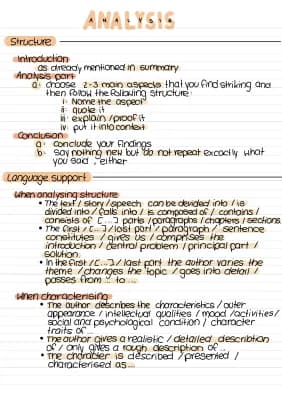 ANALYSIS
Structure
Introduction
as already mentioned in summary
Analysis part
a. choose 2-3 main aspects that you find striking and
then follow the following structure:
i. Name the aspect
ii. quote it
iii. explain / proof it
iv. put it into context
Conclusion
a. conclude your findings
b. say nothing new but do not repeat excactly what
you said, either
Language support
When analysing structure
• The text / story / speech can be devided into / is
divided into / falls into / is composed of / contains /
consists of [...] parts / paragraphs / chapters / sections.
• The first / [...] / last part / paragraph / sentence
constitutes / gives us / comprises the
introduction / central problem / principal part /
solution.
• In the first / [...] / last part the author varies the
theme / changes the topic / goes into detail /
passes from ... to ...
When characterising
• The author describes the characteristics / outer
appearance / intellectual qualities / mood / activities /
social and psychological condition / character
traits of ...
• The author gives a realistic / detailed description
of / only gives a rough description of ...
• The character is described / presented /
characterised as ...